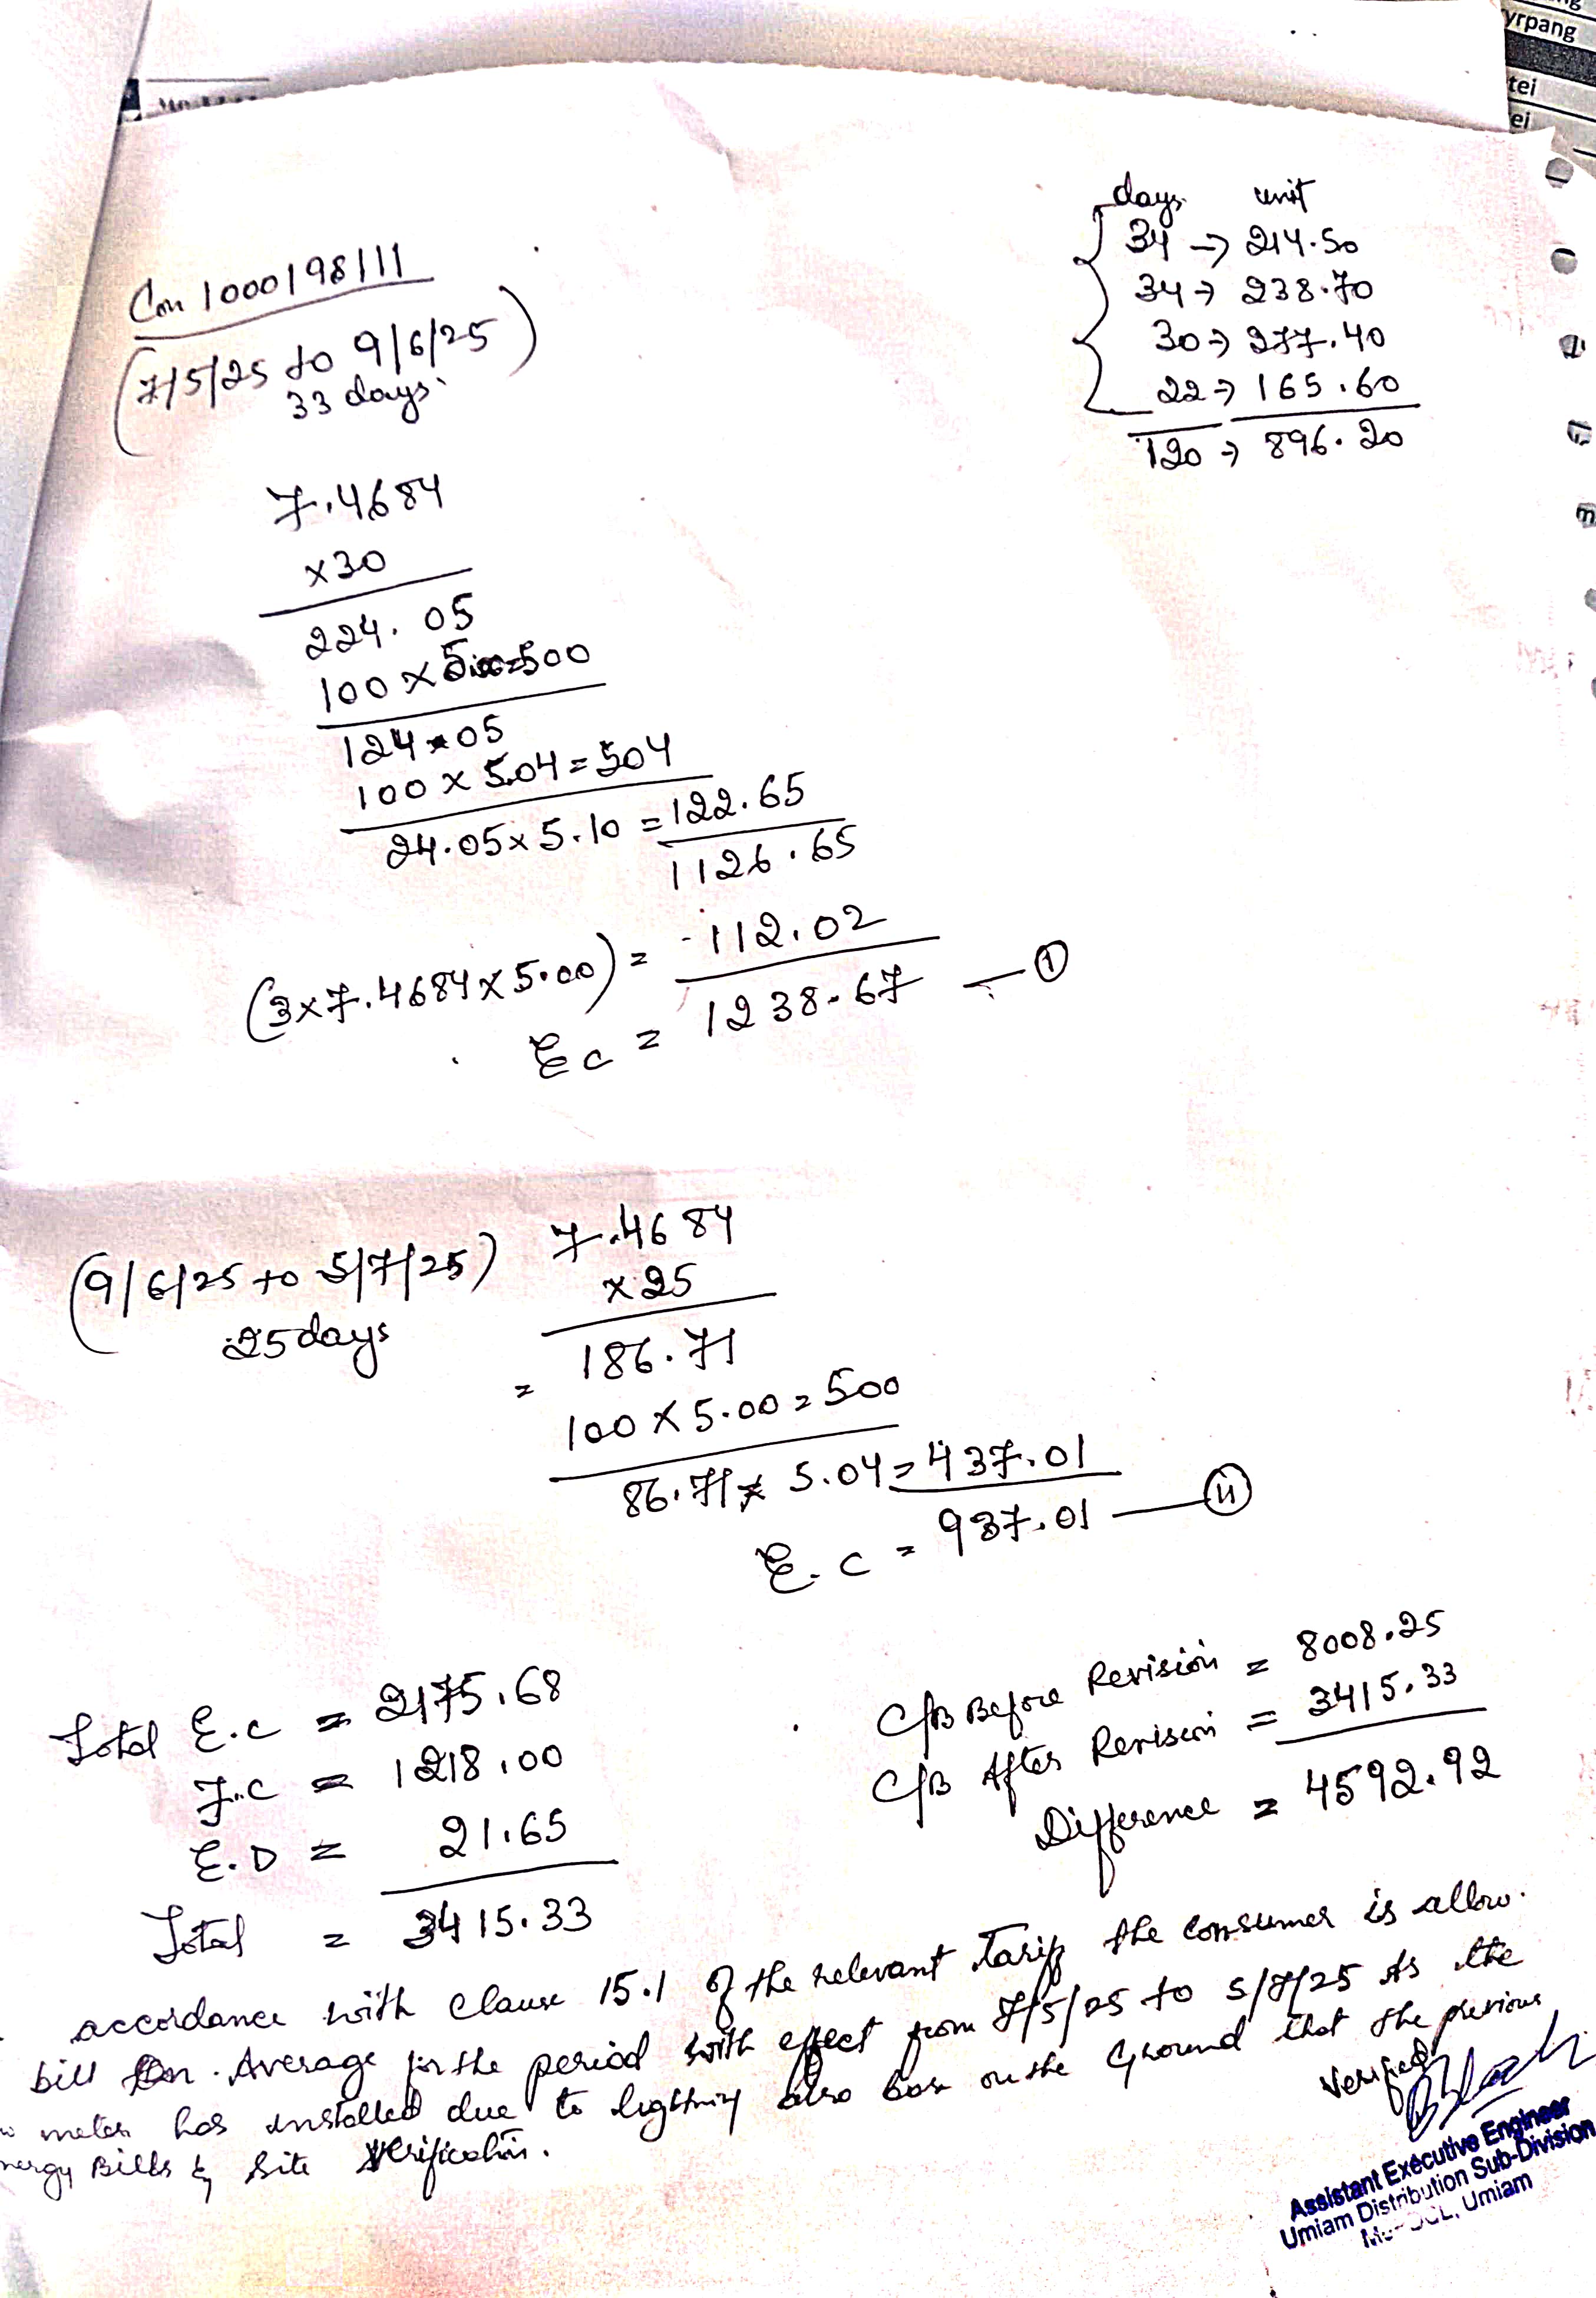 yrpang
tei
ei
days unit
34 → 214.50
34 → 238.70
30 → 277.40
22 → 165.60
120 → 896.20
Con 1000198111
(7/5/25 to 9/6/25)
33 days
7.4684
x 30
224.05
100 x 5 = 500
124.05
100 x 5.04 = 504
24.05 x 5.10 = 122.65
1126.65
(3 x 7.4684 x 5.00) = 112.02
Ec = 1238.67 — (1)
(9/6/25 to 5/7/25)
25 days
7.4684
x 25
= 186.71
100 x 5.00 = 500
86.71 x 5.04 = 437.01
E.C = 937.01 — (11)
Total E.C = 2175.68
F.C = 1218.00
E.D = 21.65
Total = 3415.33
C/B Before Revision = 8008.25
C/B After Revision = 3415.33
Difference = 4592.92
accordance with clause 15.1 of the relevant tariff the consumer is allow.
bill on Average for the period with effect from 7/5/25 to 5/7/25 As the
meter has installed due to lightning also base on the Ground that the previous
nergy Bills & Site Verification.
Verified
Assistant Executive Engineer
Umiam Distribution Sub-Division
Umiam